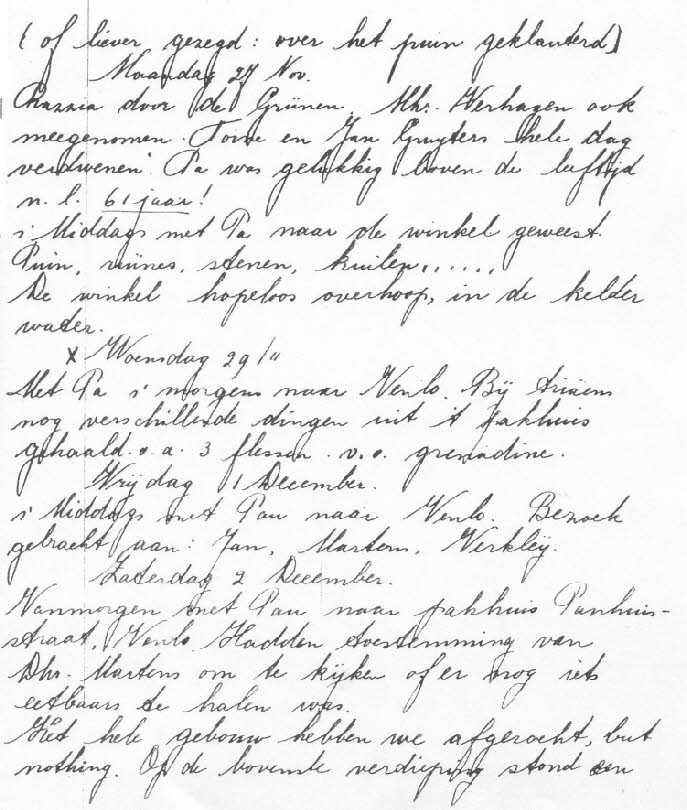 ( of liever gezegd : over het puin geklauterd )
Maandag 27 Nov.
Razzia door de Grünen. Mhr. Verhagen ook
meegenomen. Toine en Jan Gruyters hele dag
verdwenen. Pa was gelukkig boven de leeftijd
n.l. 61 jaar!
's Middags met Pa naar de winkel geweest.
Puin, ruïnes, stenen, kuilen......
De winkel hopeloos overhoop, in de kelder
water.
x Woensdag 29/11
Met Pa 's morgens naar Venlo. Bij
nog verschillende dingen uit 't pakhuis
gehaald o.a. 3 flessen v.o. grenadine.
Vrijdag 1 December.
's Middags met Pau naar Venlo. Bezoek
gebracht aan: Jan, Martens,
Zaterdag 2 December.
Vanmorgen met Pau naar pakhuis Panhuis-
straat, Venlo. Hadden toestemming van
Dhr. Martens om te kijken of er nog iets
eetbaars te halen was.
Het hele gebouw hebben we afgezocht, but
nothing. Op de bovenste verdieping stond een